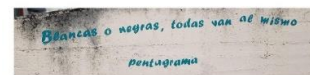 Blancas o negras, todas van al mismo
pentagrama